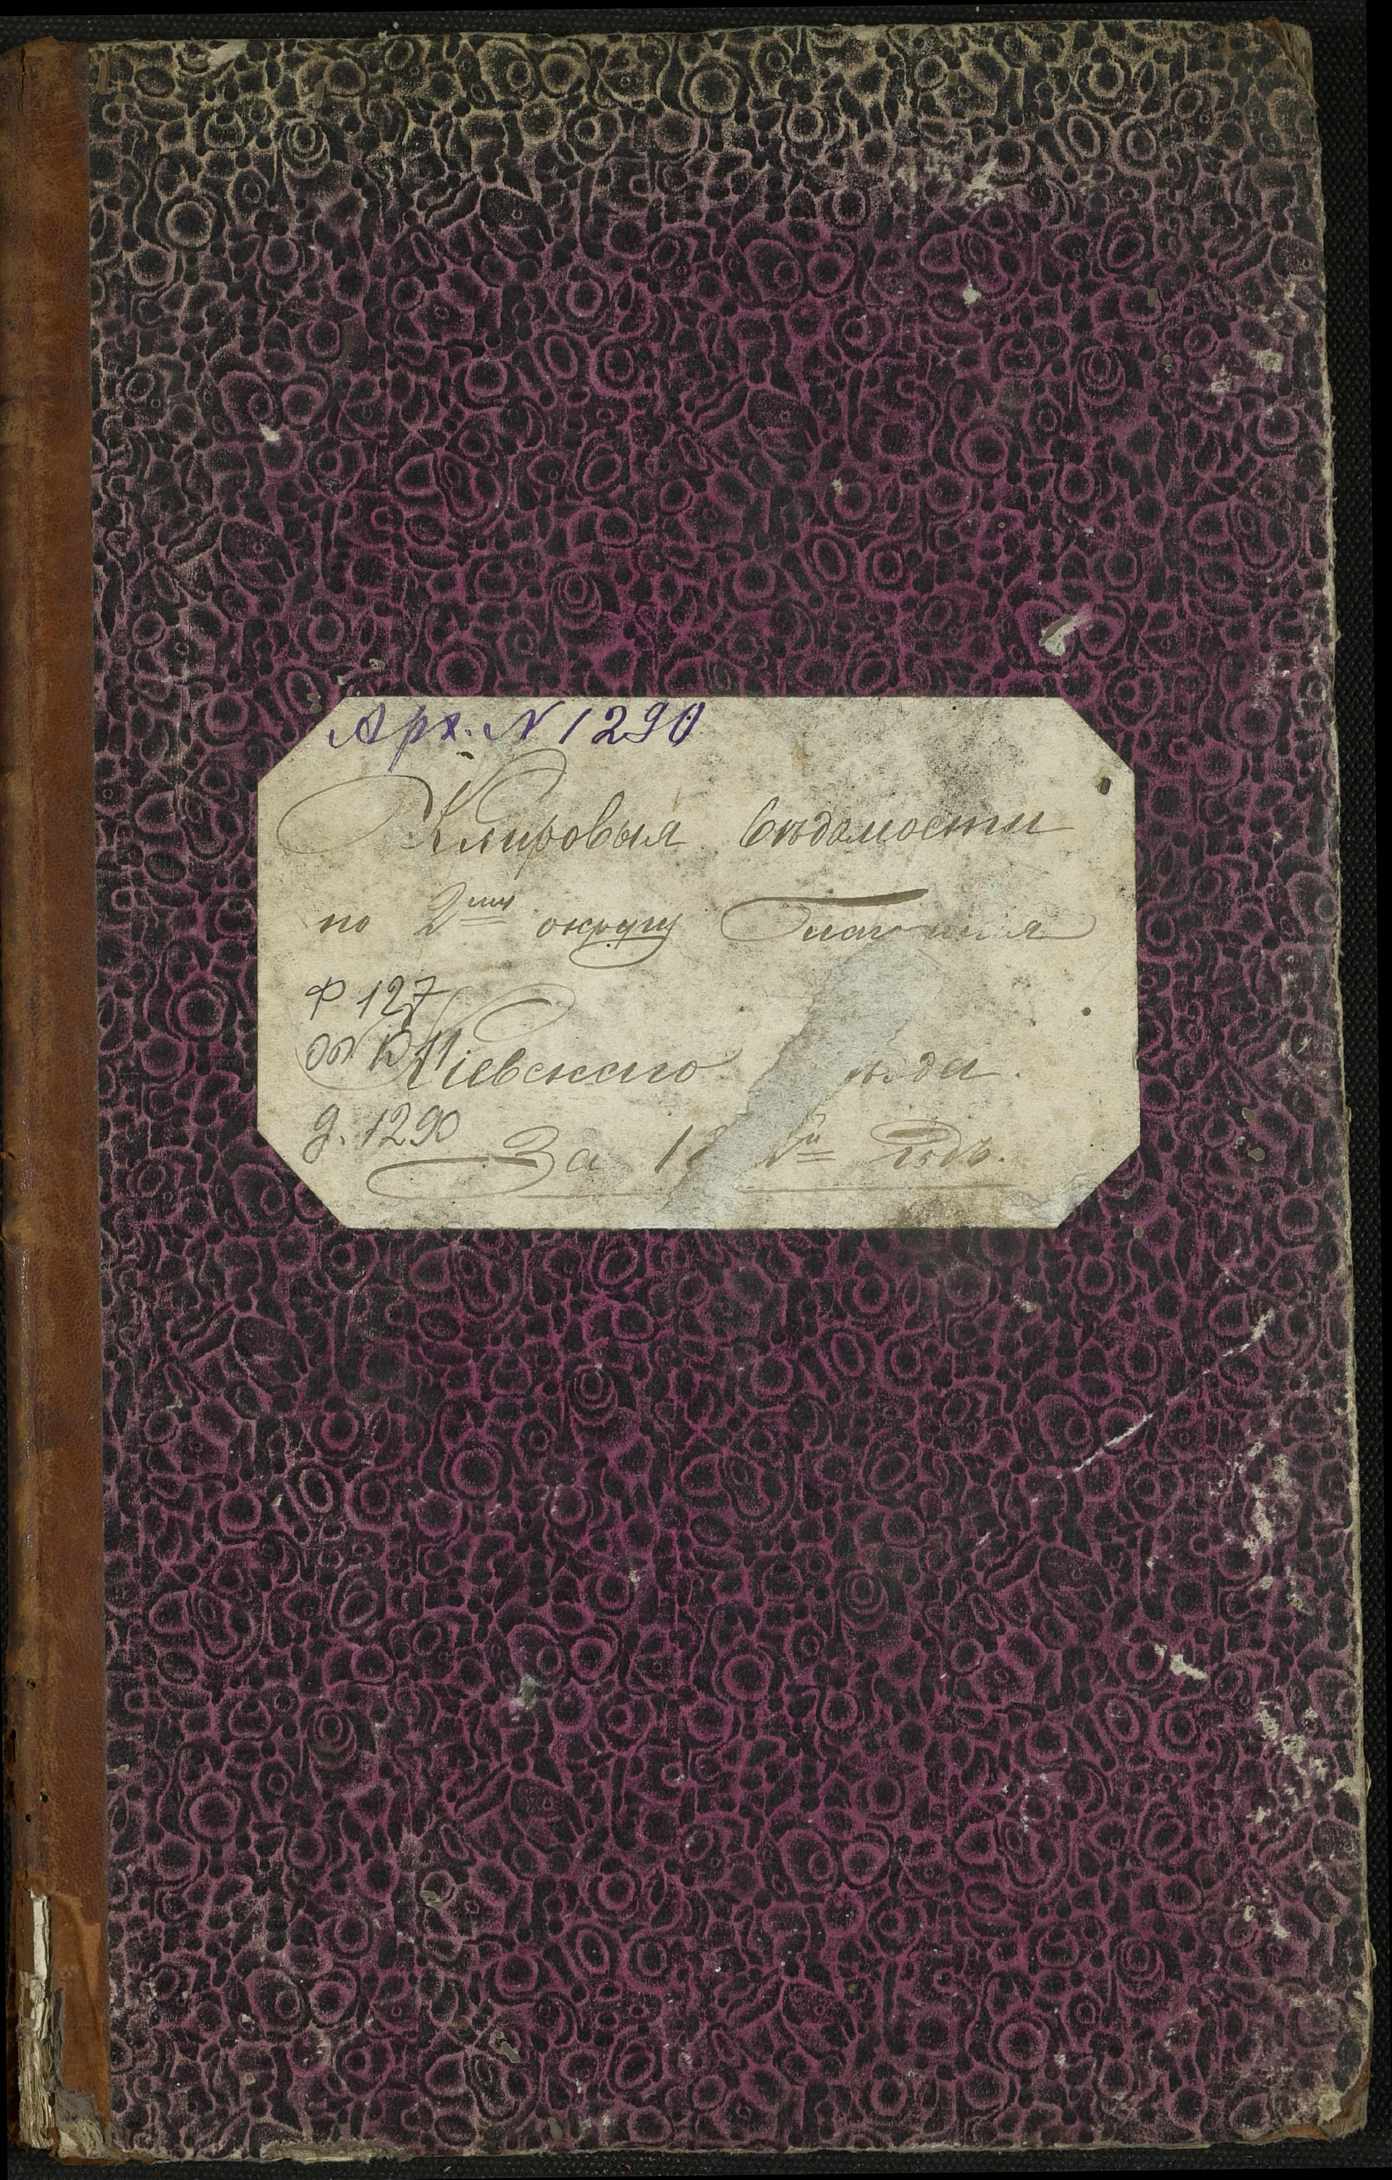 Арх. N 1290
Клировыя вѣдомости
по 2му округу
ф 127
оп
Кіевскаго
д. 1290
За годъ.